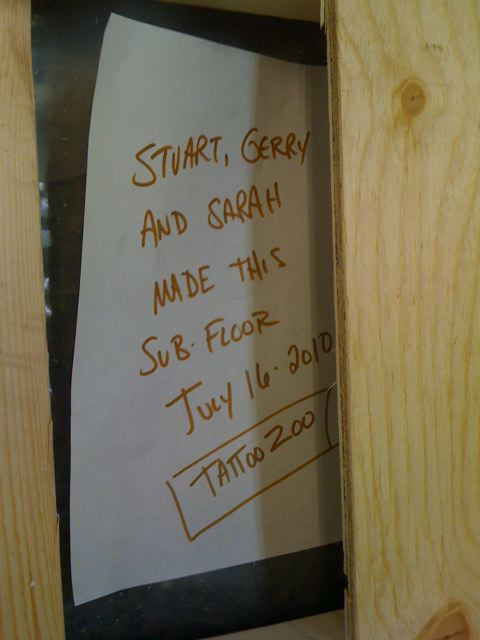 STUART, GERRY
AND SARAH
MADE THIS
SUB·FLOOR
JULY 16·2010
TATTOO ZOO